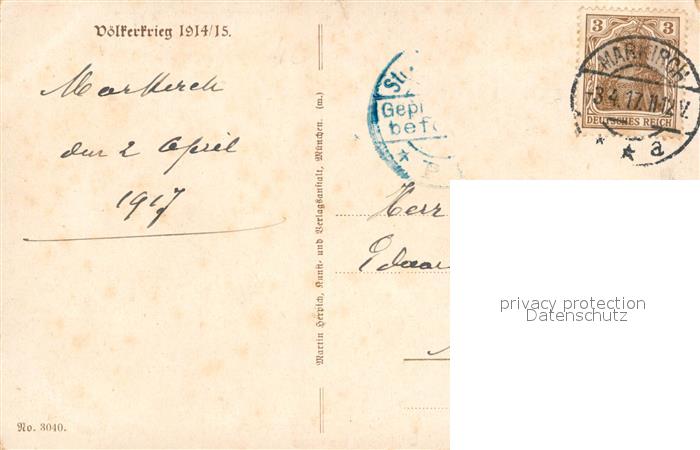 Völkerkrieg 1914/15.
Markirch
den 2 April
1917
No. 3040.
Martin Herpich, Kunst- und Verlagsanstalt, München. (m.)
Gepr
befö
3 3
DEUTSCHES REICH
MARKIRCH
-3.4.17.11-12V.
* * a
Herr
privacy protection
Datenschutz